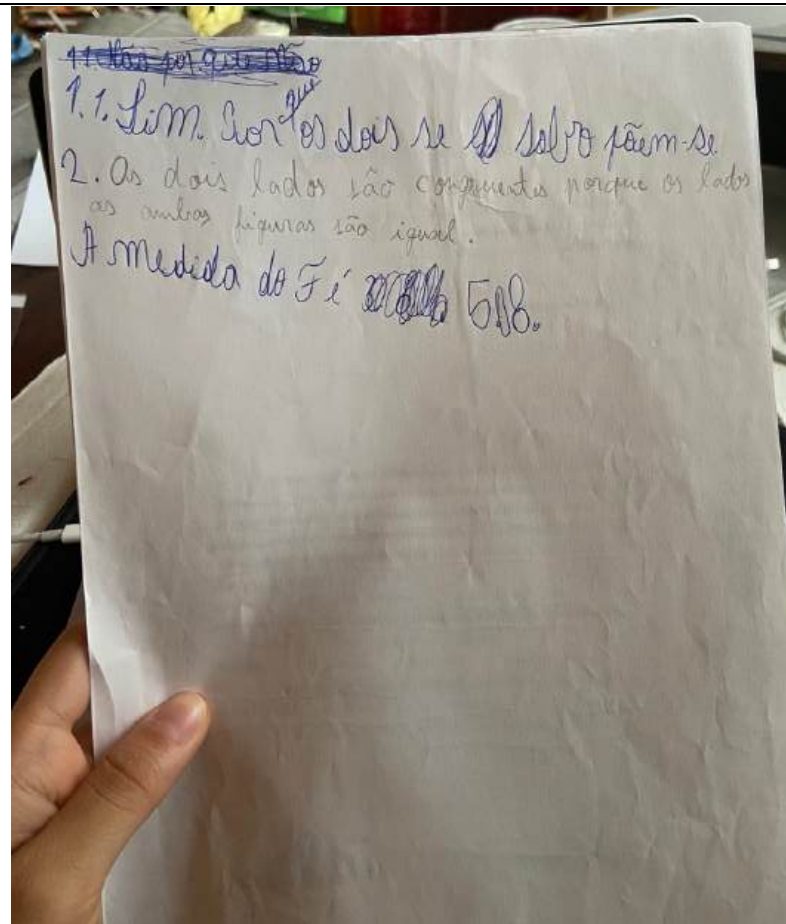 1.1. Não por que não
1.1. Sim. Por que os dois se sobro põem-se
2. Os dois lados são congruentes porque os lados
as ambas figuras são igual.
A medida do F é 508.